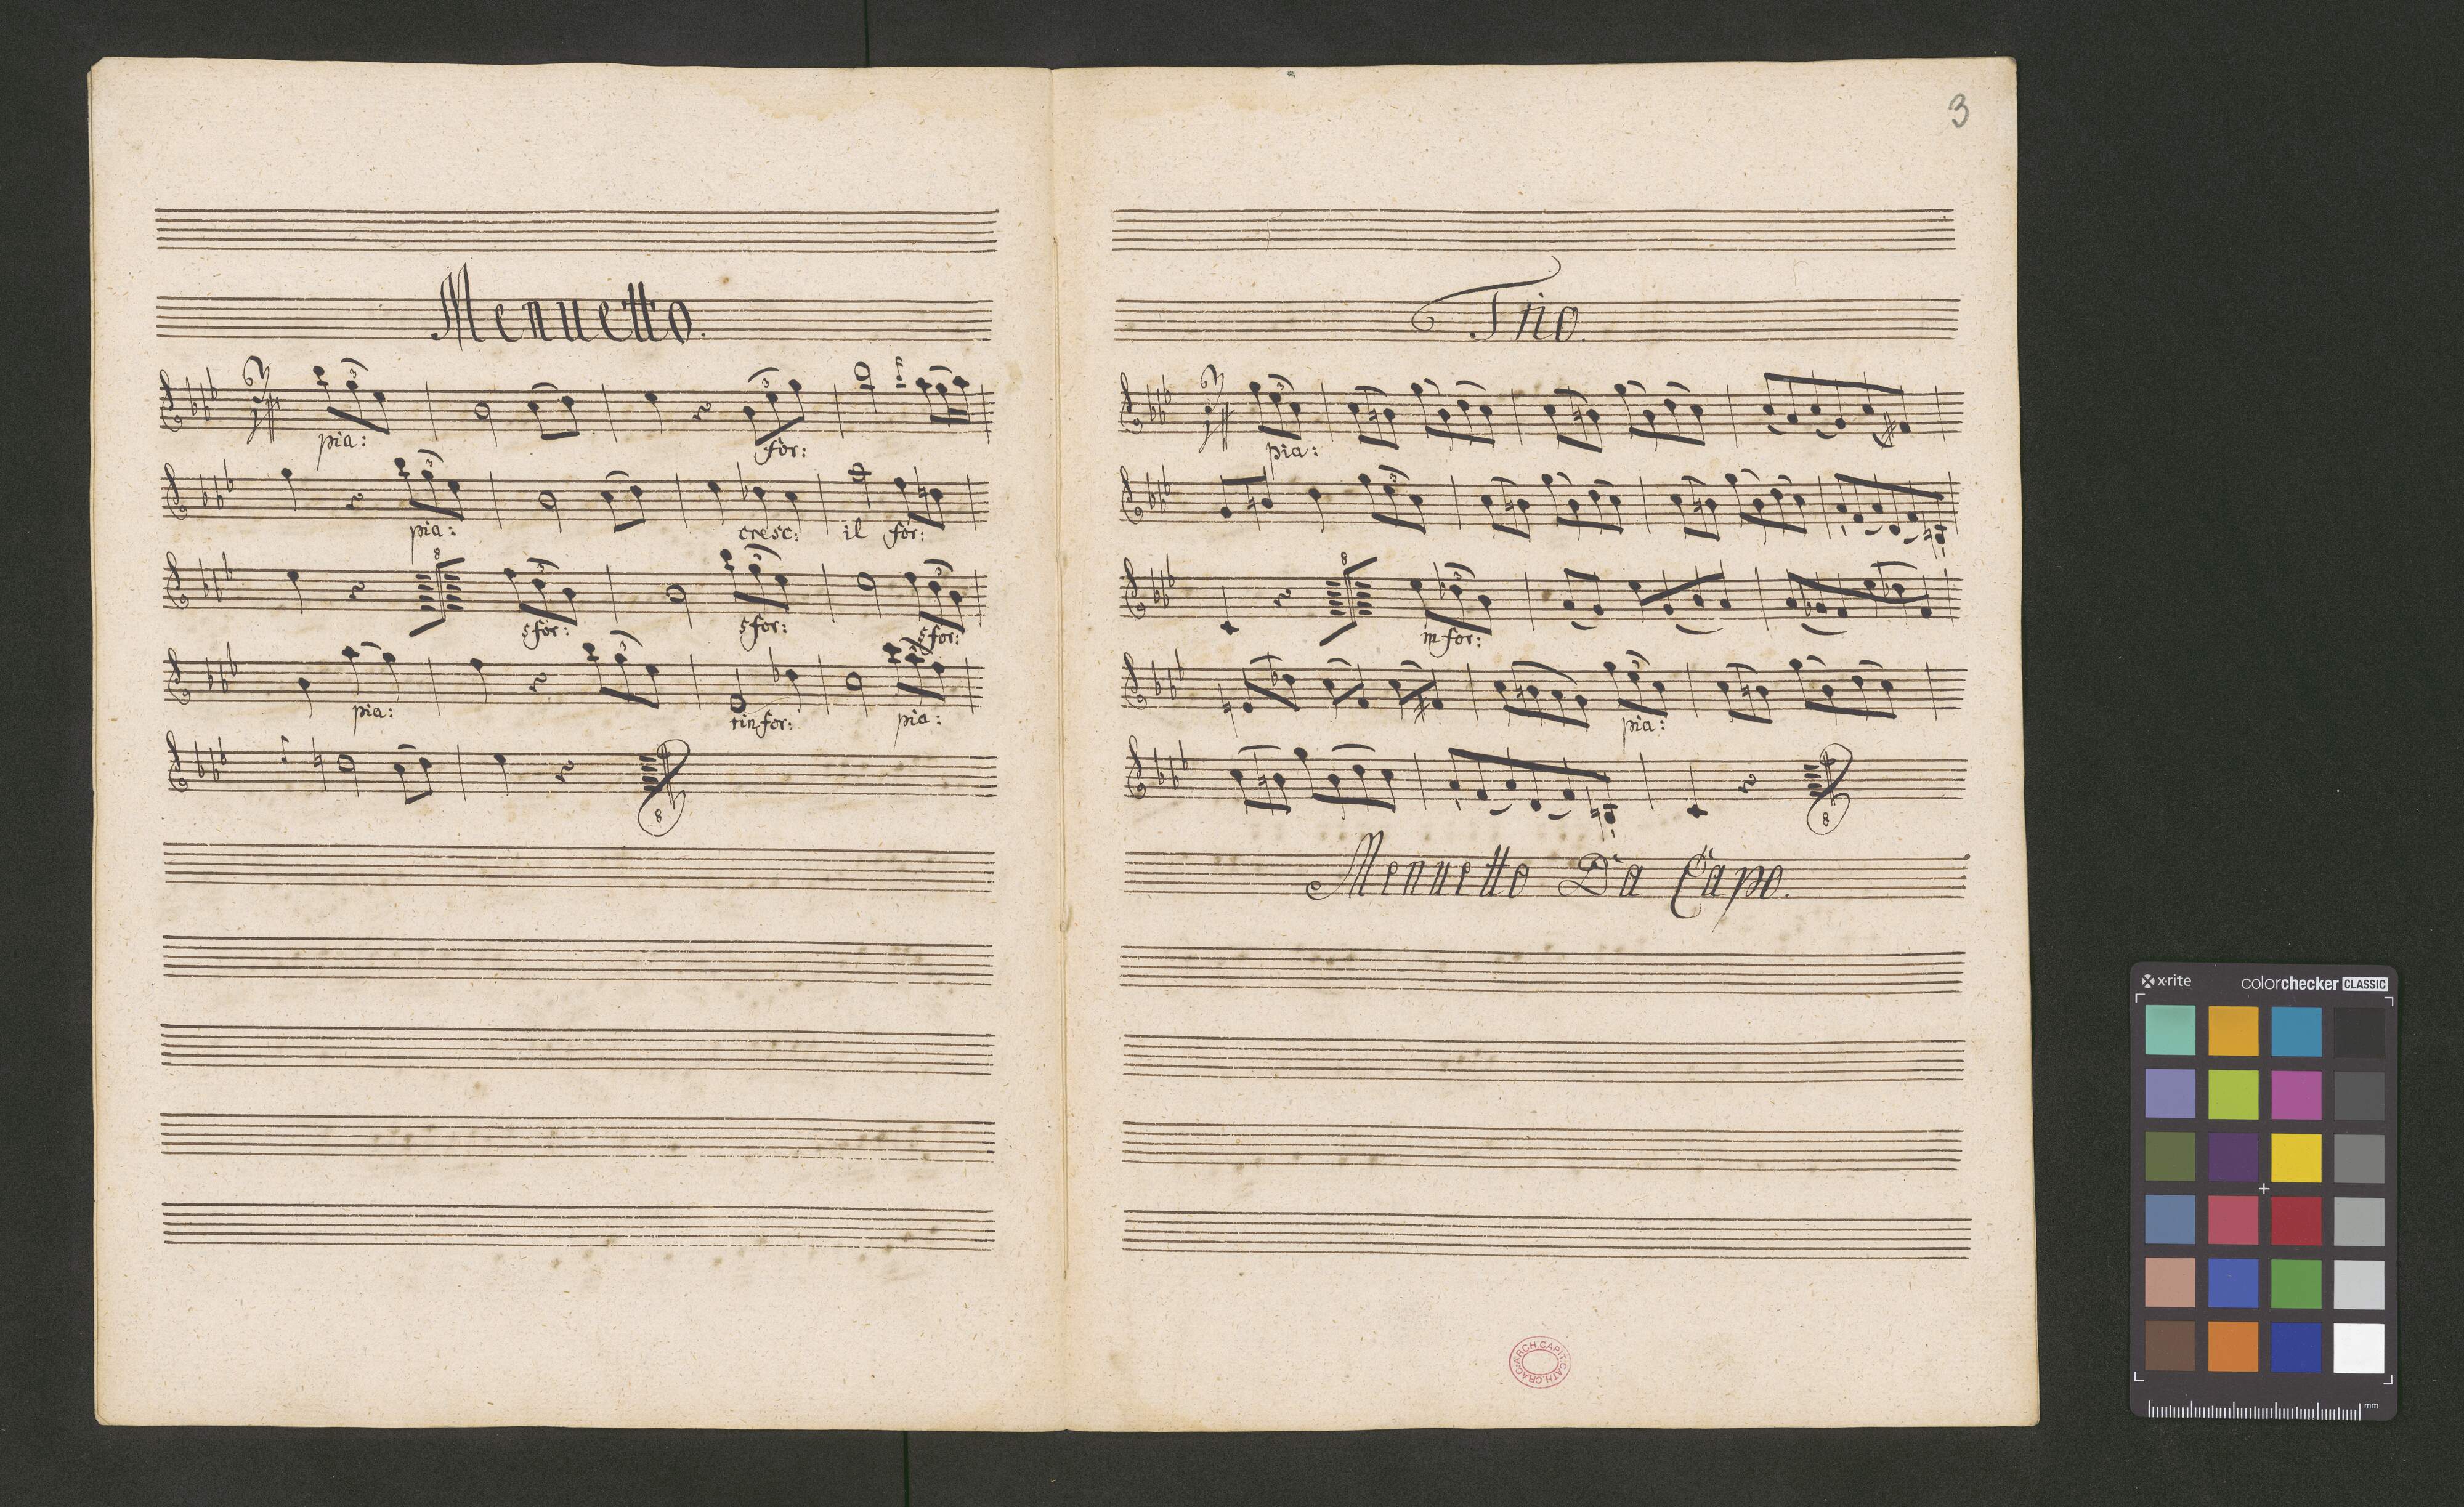 Menuetto.
3
pia:
3
for:
pia:
3
cresc:
il for:
8
3
sfor:
3
sfor:
3
sfor:
pia:
3
rinfor:
3
pia:
8
3
Trio.
3
pia:
3
8
3
infor:
3
pia:
8
Menuetto Da Capo.
ARCH. CAPIT. CATH. CRAC.
x·rite
colorchecker CLASSIC
mm